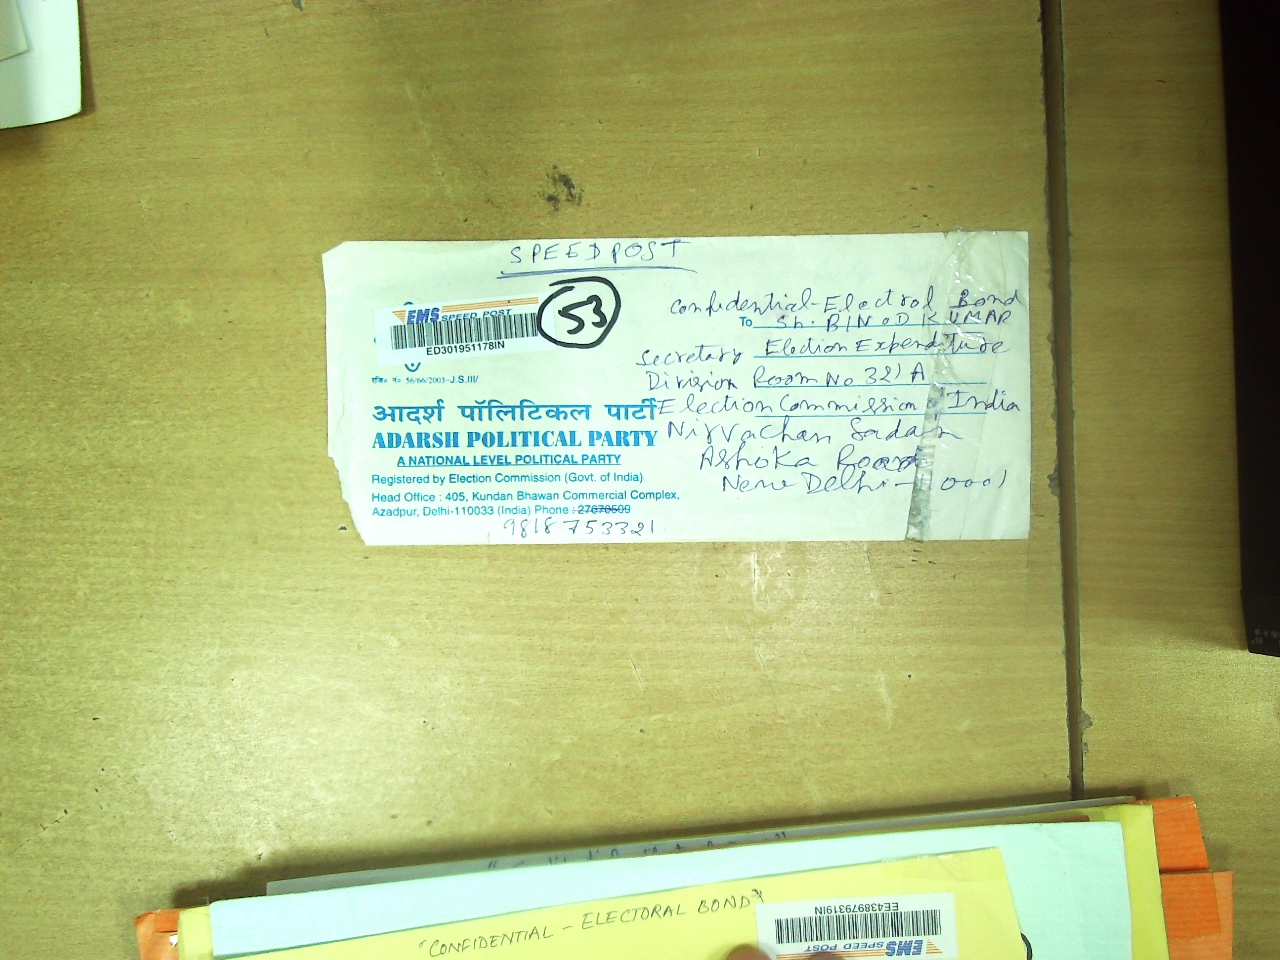 SPEEDPOST
EMS SPEED POST
53
ED301951178IN
रजि० नं० 56/66/2003-J.S.III/
आदर्श पॉलिटिकल पार्टी
ADARSH POLITICAL PARTY
A NATIONAL LEVEL POLITICAL PARTY
Registered by Election Commission (Govt. of India)
Head Office : 405, Kundan Bhawan Commercial Complex,
Azadpur, Delhi-110033 (India) Phone : 27670509
9818753321
Confidential-Electrol Bond
To Sh. BINOD KUMAR
Secretary Election Expenditure
Division Room No 321 A
Election Commission India
Nirvachan Sadan
Ashoka Road
New Delhi-110001
"CONFIDENTIAL - ELECTORAL BOND"
EE438979319IN
EMS SPEED POST